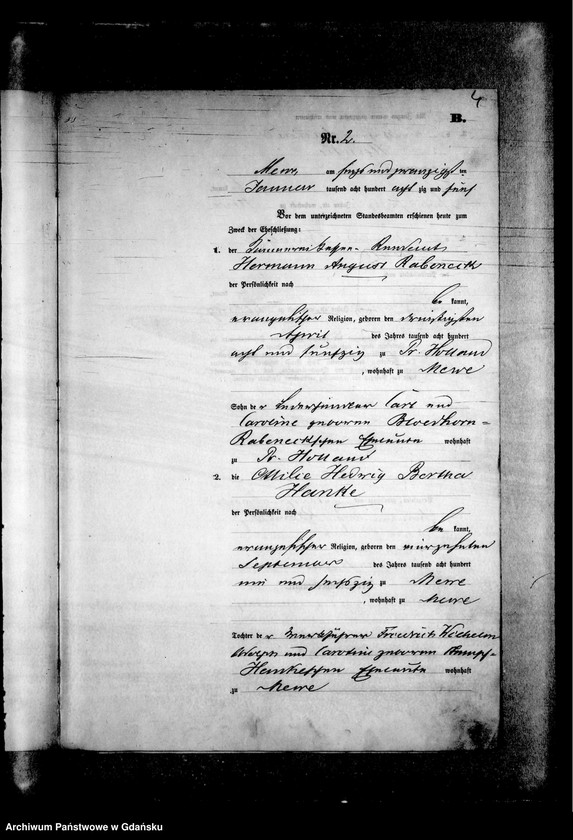 4
B.
Nr. 2.
Mewe, am sechs und zwanzigsten
Januar tausend acht hundert acht zig und fünf
Vor dem unterzeichneten Standesbeamten erschienen heute zum
Zweck der Eheschließung:
1. der Kämmereikassen- Rendant,
Hermann August Rabeneck
der Persönlichkeit nach
be kannt,
evangelischer Religion, geboren den dreißigsten
April des Jahres tausend acht hundert
acht und fünfzig zu Pr. Holland
, wohnhaft zu Mewe
Sohn der Carl und
Caroline geborenen Bloedhorn-
Rabeneckschen Eheleute wohnhaft
zu Pr. Holland
2. die Ottilie Hedwig Bertha
Hanke
der Persönlichkeit nach
be kannt,
evangelischer Religion, geboren den vierzehnten
September des Jahres tausend acht hundert
ein und sechszig zu Mewe
, wohnhaft zu Mewe
Tochter der Werkführer Friedrich Wilhelm
und Caroline geborenen
Hankeschen Eheleute wohnhaft
zu Mewe
Archiwum Państwowe w Gdańsku